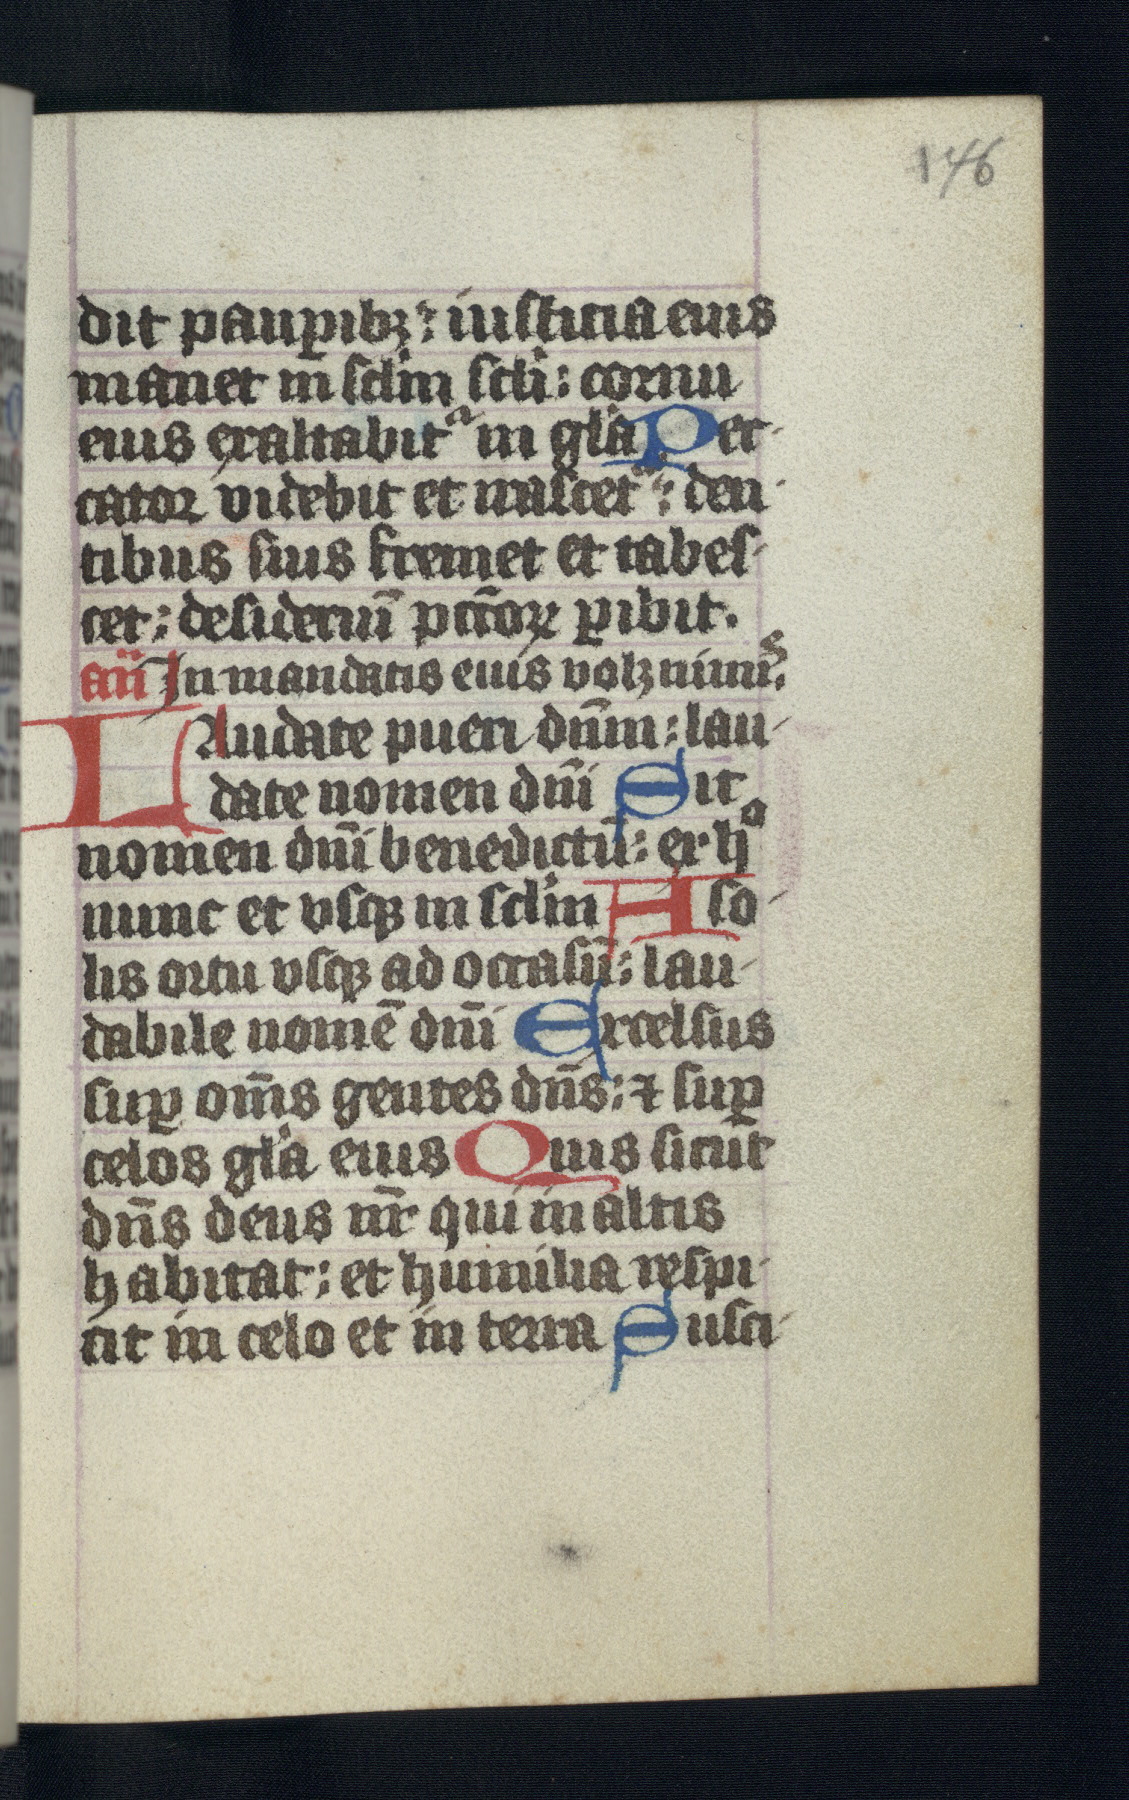 146
dit paup̲ibꝫ: iusticia eius
manet in sclm̄ scłi: cornu
eius exaltabit᷑ in gła Pec-
cator videbit et irascet᷑: den-
tibus suis fremet et tabes-
cet: desideriū pcc̄oꝝ ꝑibit.
an̄ In mandatis eius volꝫ nimis.
Laudate pueri dn̄m: lau-
date nomen dn̄i Sit
nomen dn̄i benedictū: ex hͦ
nunc et vsqꝫ in sclm̄ A so-
lis ortu vsqꝫ ad occasū: lau-
dabile nomē dn̄i Excelsus
suꝑ om̄s gentes dn̄s: ⁊ suꝑ
celos gła eius Quis sicut
dn̄s deus nr̄ qui in altis
habitat: et humilia respi-
cit in celo et in terra Susci-